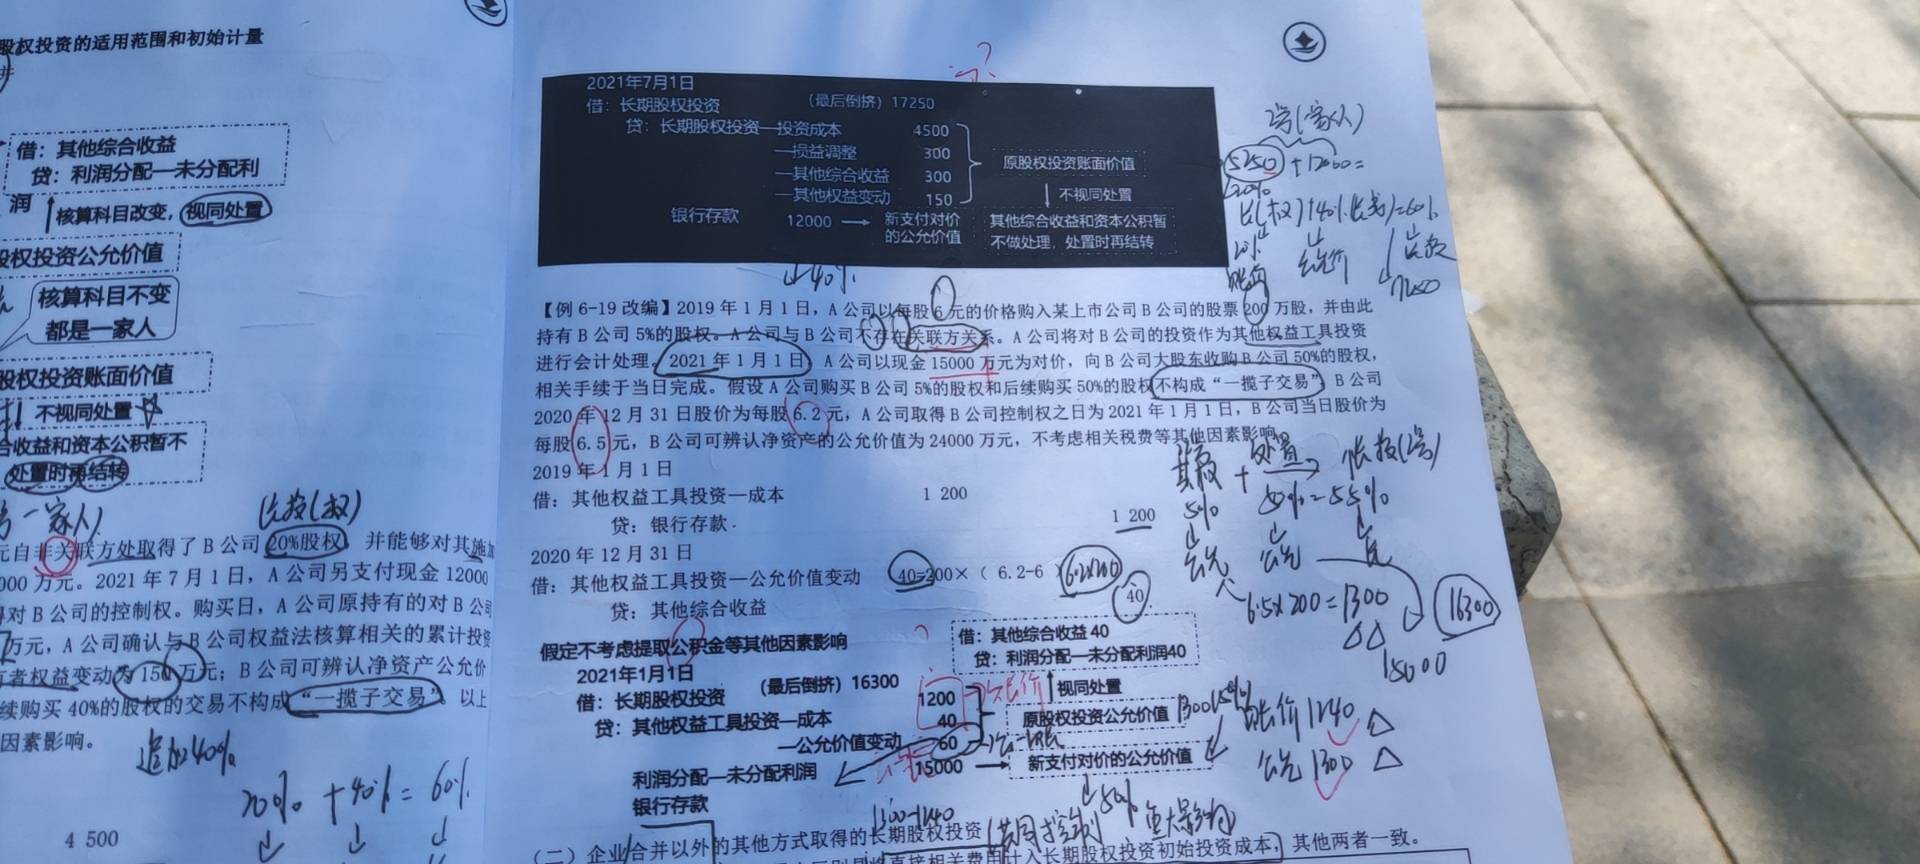 股权投资的适用范围和初始计量
借：其他综合收益
贷：利润分配—未分配利
润
核算科目改变，视同处置
股权投资公允价值
核算科目不变
都是一家人
股权投资账面价值
不视同处置
合收益和资本公积暂不
处置时再结转
一家人)
长投(权)
元自非关联方处取得了 B 公司 20%股权，并能够对其施加
000 万元。2021 年 7 月 1 日，A 公司另支付现金 12000
得对 B 公司的控制权。购买日，A 公司原持有的对 B 公司
万元，A 公司确认与 B 公司权益法核算相关的累计投资
有者权益变动为 150 万元；B 公司可辨认净资产公允价
续购买 40%的股权的交易不构成“一揽子交易”。以上
因素影响。
追加40%
20% + 40% = 60%
4 500
2021年7月1日
借：长期股权投资 （最后倒挤）17250
贷：长期股权投资—投资成本 4500
—损益调整 300
—其他综合收益 300
—其他权益变动 150
银行存款 12000
原股权投资账面价值
不视同处置
新支付对价
的公允价值
其他综合收益和资本公积暂
不做处理，处置时再结转
40%
2号(一家人)
5250 + 12000 =
20%
长(权)+40%长(成)=60%
20%
账价
公允价
长投
17250
【例 6-19 改编】2019 年 1 月 1 日，A 公司以每股 6 元的价格购入某上市公司 B 公司的股票 200 万股，并由此
持有 B 公司 5%的股权。A 公司与 B 公司不存在关联方关系。A 公司将对 B 公司的投资作为其他权益工具投资
进行会计处理。2021 年 1 月 1 日，A 公司以现金 15000 万元为对价，向 B 公司大股东收购 B 公司 50%的股权，
相关手续于当日完成。假设 A 公司购买 B 公司 5%的股权和后续购买 50%的股权不构成“一揽子交易”，B 公司
2020 年 12 月 31 日股价为每股 6.2 元，A 公司取得 B 公司控制权之日为 2021 年 1 月 1 日，B 公司当日股价为
每股 6.5 元，B 公司可辨认净资产的公允价值为 24000 万元，不考虑相关税费等其他因素影响。
2019 年 1 月 1 日
借：其他权益工具投资—成本 1 200
贷：银行存款. 1 200
2020 年 12 月 31 日
借：其他权益工具投资—公允价值变动 40=200×（ 6.2-6 ） 6.2×200
贷：其他综合收益 40
+ 处置 → 长投(2号)
5% 50% = 55%
公允 公允
6.5×200=1300
16300
15000
假定不考虑提取公积金等其他因素影响
借：其他综合收益 40
贷：利润分配—未分配利润40
视同处置
2021年1月1日
借：长期股权投资 （最后倒挤）16300
贷：其他权益工具投资—成本 1200
—公允价值变动 40
利润分配—未分配利润 60
银行存款 15000
原股权投资公允价值
新支付对价的公允价值
1300(5%)
账价 1240
公允 1300
50%
1300-1240
（二）企业合并以外的其他方式取得的长期股权投资 (共同控制 重大影响)
直接相关费用计入长期股权投资初始投资成本，其他两者一致。